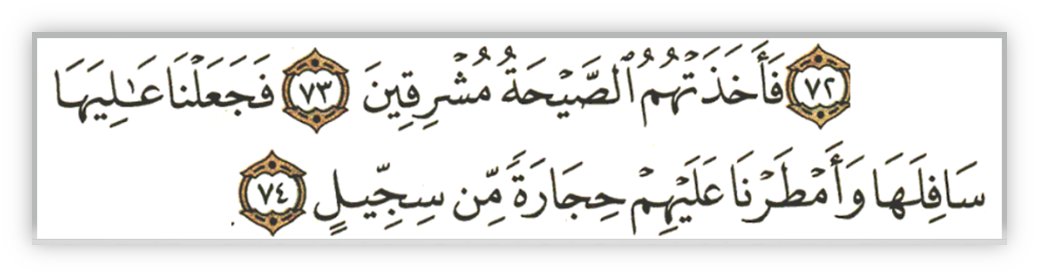 ٧٢ فَأَخَذَتْهُمُ ٱلصَّيْحَةُ مُشْرِقِينَ ٧٣ فَجَعَلْنَا عَـٰلِيَهَا
سَافِلَهَا وَأَمْطَرْنَا عَلَيْهِمْ حِجَارَةً مِّن سِجِّيلٍ ٧٤